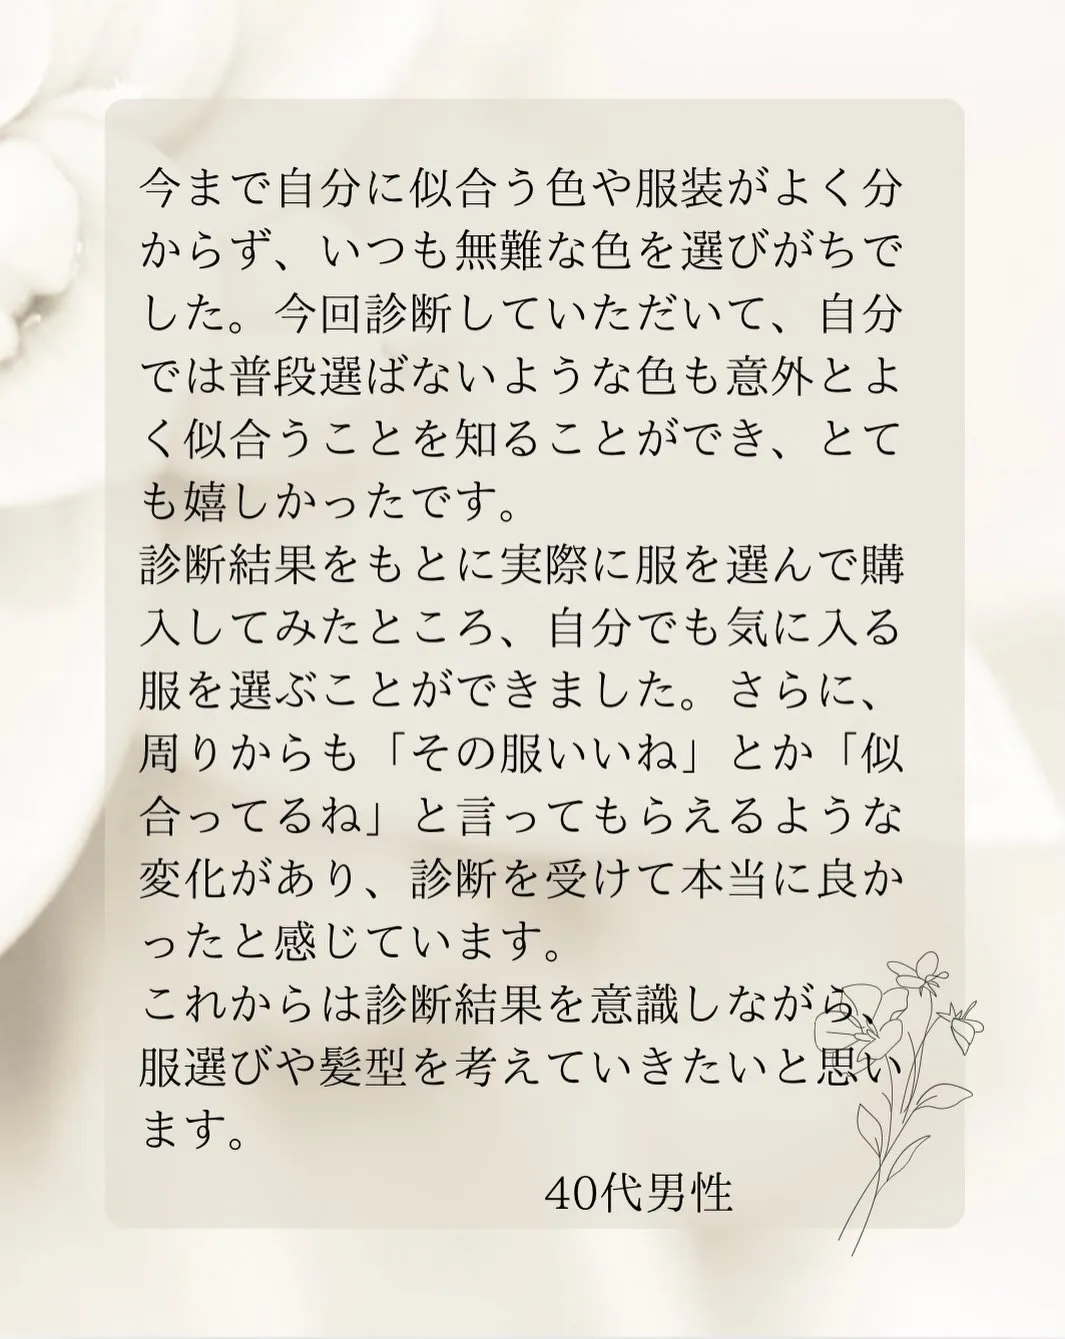 今まで自分に似合う色や服装がよく分
からず、いつも無難な色を選びがちで
した。今回診断していただいて、自分
では普段選ばないような色も意外とよ
く似合うことを知ることができ、とて
も嬉しかったです。
診断結果をもとに実際に服を選んで購
入してみたところ、自分でも気に入る
服を選ぶことができました。さらに、
周りからも「その服いいね」とか「似
合ってるね」と言ってもらえるような
変化があり、診断を受けて本当に良か
ったと感じています。
これからは診断結果を意識しながら、
服選びや髪型を考えていきたいと思い
ます。
40代男性